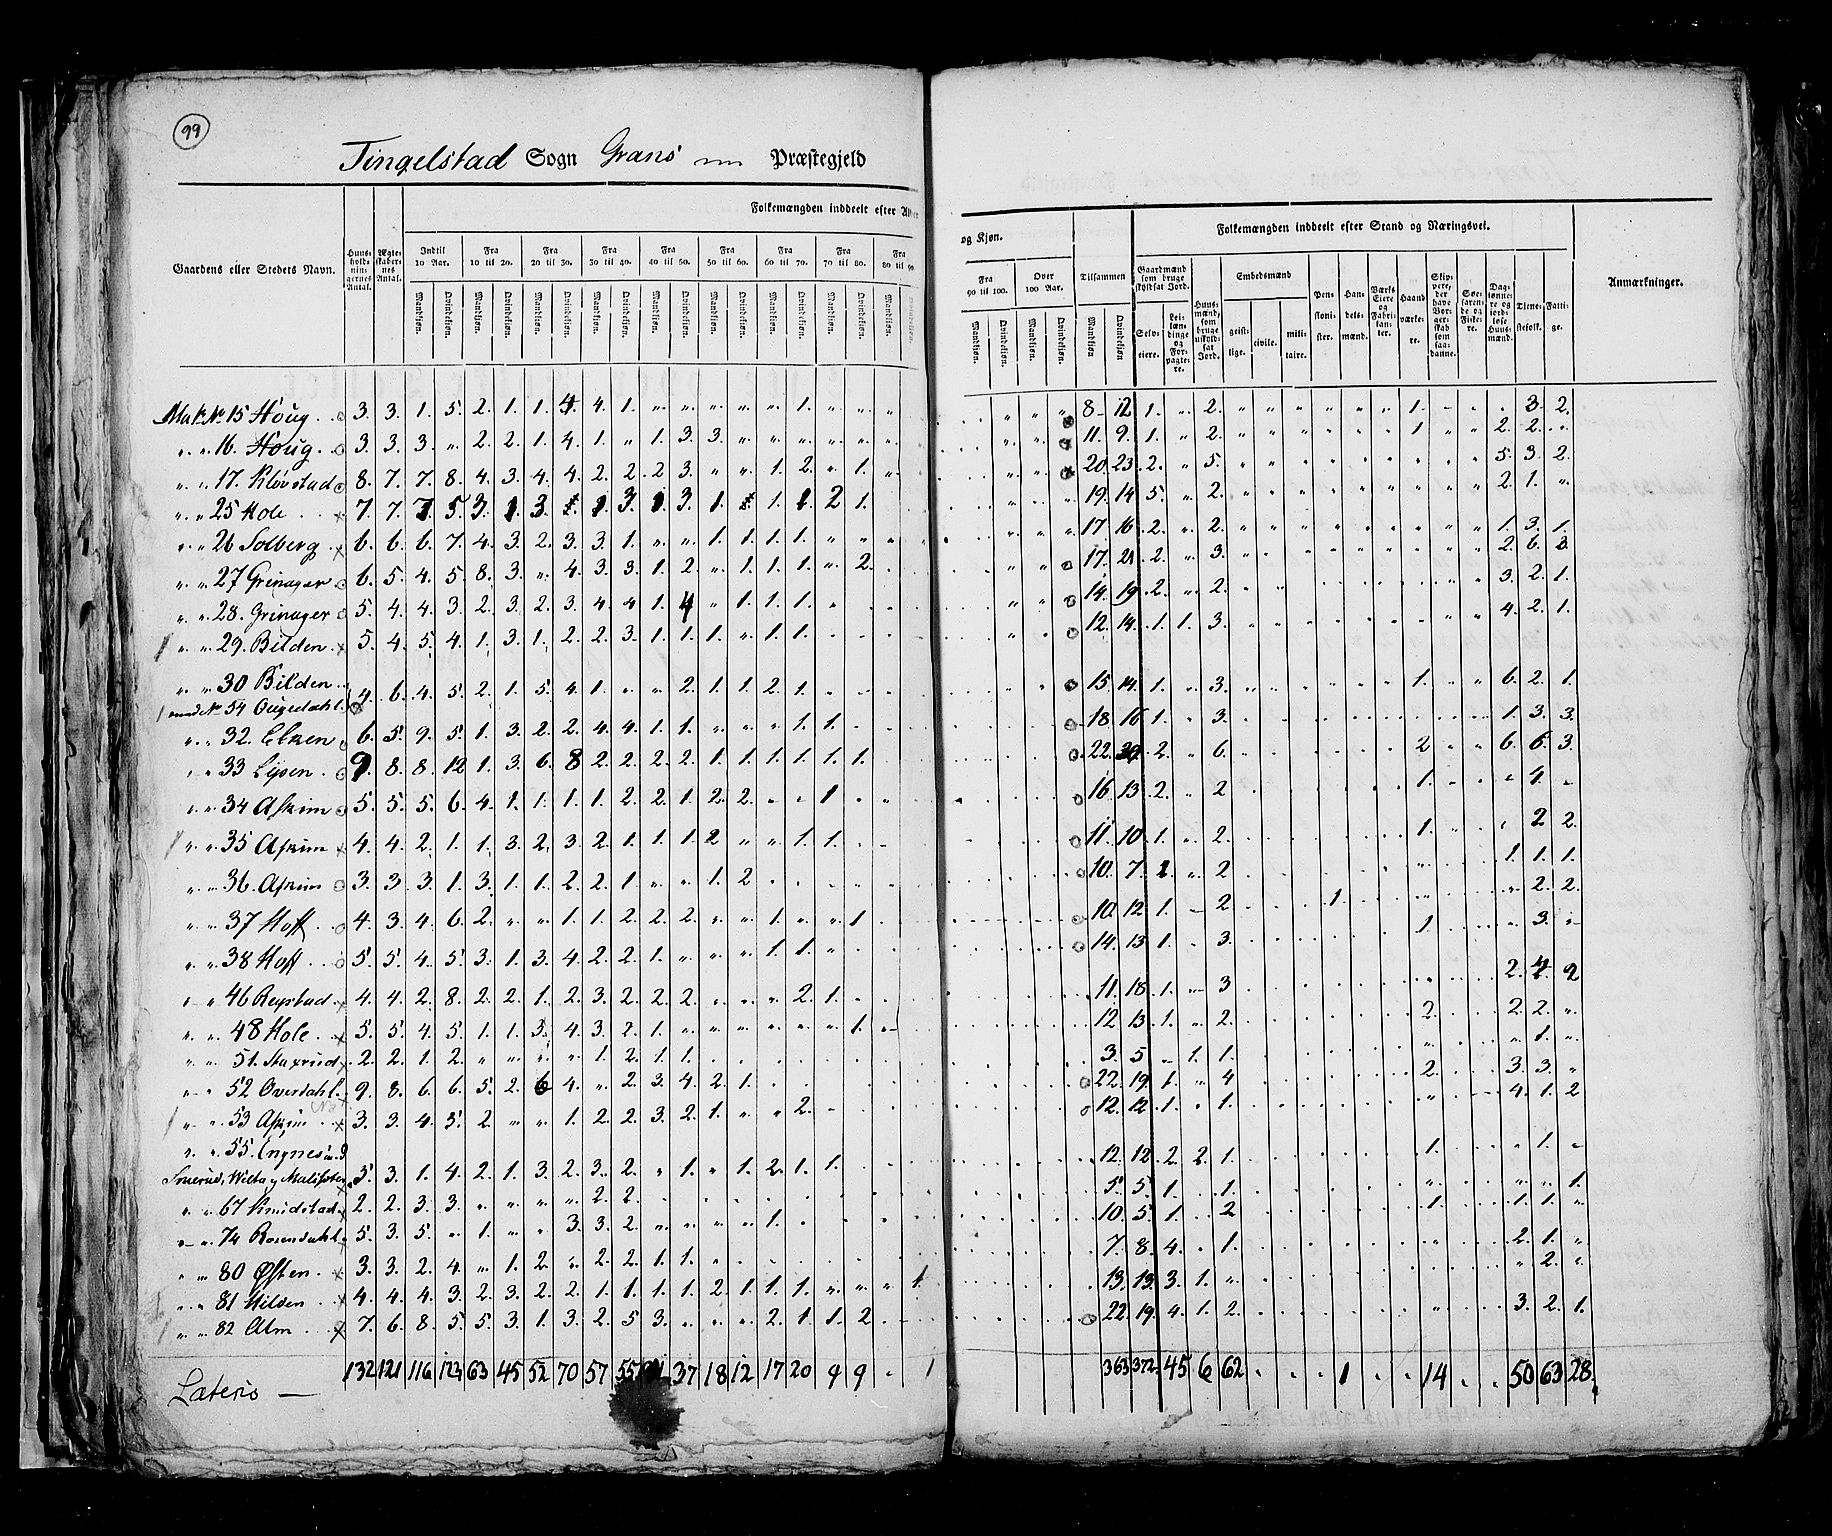 99
Tingelstad Sogn Grans Præstegjeld
Folkemængden inddeelt efter Alder
og Kjøn.
Folkemængden inddeelt efter Stand og Næringsvei.
Gaardens eller Stedets Navn.
Huusholdningernes Antal.
Ægteskabernes Antal.
Indtil 10 Aar.
Fra 10 til 20.
Fra 20 til 30.
Fra 30 til 40.
Fra 40 til 50.
Fra 50 til 60.
Fra 60 til 70.
Fra 70 til 80.
Fra 80 til 90
Fra 90 til 100.
Over 100 Aar.
Tilsammen
Mandkjøn. Qvindekjøn.
Gaardmænd som bruge skyldsat Jord.
Selveiere.
Leilændinge og Forpagtere.
Huusmænd, som bruge uskyldsat Jord.
Embedsmænd
geistlige. civile. militaire.
Pensionister.
Handelsmænd.
Værks Eiere og Fabrikanter.
Haandværkere.
Skippere, der have Borgerskab som saadanne.
Søefarende og Fiskere.
Daglønnere og jordløse Huusmænd.
Tjenestefolk.
Fattige.
Anmærkninger.
Mat. No 15 Houg 3. 3. 1. 5. 2. 1. 1. 4. 4. 1. " " " " " 1. " " " 8 12 1. " 2. 1. 3. 2.
" " 16. Houg 3. 3. 3. " 2. 2. 1. 4. 1. " 1. 3. 3. 11. 9. 1. " 2. 1 2. 2.
" " 17. Kløvstad 8. 7. 7. 8. 4. 3. 4. 4. 2. 2. 2. 3. " " 1. 2. " 1. 20. 23. 2. " 5. 5. 3. 2.
" " 25 Hole 7. 7. 7. 5. 3. 1. 3. 1. 3. 1. 3. 1. 1. 1. 2 1. 19. 14 5. " 2. 2. 1.
" " 26 Solberg 6. 6. 6. 7. 4. 3. 2. 3. 3. 1. " " 1. 1. 1. 1. 17 16. 2. " 2. 1. 3. 1.
" " 27 Grinager 6. 5. 4. 5. 8. 3. " 4. 3. 3. 1. 2. " 1. 1. 1. " 2. 17. 21. 2. " 3. 2. 6. 3.
" " 28. Grinager 5. 4. 4. 3. 2. 3. 2. 3. 4. 4 1. 4 " 1. 1. 1. 14. 19. 2. " 2. 3. 2. 1.
" " 29. Bilden 5. 4. 5. 4. 1. 3. 1. 2. 2. 3. 1. 1. 1. " 1. 1. 12. 14. 1. 1. 3. 4. 2. 1.
" " 30 Bilden
4. 6. 4. 5. 2. 1. 5. 4. 1. " " 2. 1. 1. 2. 1. 15. 14. 1. " 3. 1. 6. 2. 1.
" " 32. 6. 5. 9. 5. 1. 3. 2. 2. 4. 4. 1. 1. " " 1. 1. 18. 16 1. " 3. 1. 3. 3.
" " 33 9. 8. 8. 12 1. 3. 6. 8 2. 2. 2. 2. 1. 1. 1. 1. 1. 1. 22. 2. " 6. 2 6. 6. 3.
" " 34 Askim 5. 5. 5. 6. 4. 1. 1. 1. 1. 2. 2. 1. 2. 2. " " 1 16. 13. 2. " 2 1. 4.
" " 35 Askim 4. 4. 2. 1. 1. 3. 2. 3. 2. 1. 1. 1. 2 " " 1. 1. 11. 10. 1. " 2. 1. 2 2.
" " 36. Askim 3. 3. 3. 1. 3. 1. 1. 2. 2. 1 " " 1. 2 10. 7. 1. " 2 1. 1. 1.
" " 37 Hoff 4. 3. 4. 6. 2. " " 1. 1. 2. 2. 2. " " 1. " " 1 10. 12. 1. 2 1. 2. 2.
" " 38 Hoff 5. 5. 4. 5. 3. 1. 3. 4. 2. 2. 1. " " " 1. 1. 14. 13 1. 3. 1 3.
" " 46 4. 4. 2. 8. 2. 2. 1. 2. 3. 2. 2. 2. 2. 1. 11. 18. 1. 3 2. 4. 2
" " 48 Hole 5. 5. 4. 5. 1. 1. 3. 4. 3. 2. 1. 1. 12 13. 1. " 2. 2. 2. 2.
" " 51. 2. 2. 1. 2. 1. 2. 1. 1. 3. 5. 1. 1. 1.
" " 52 Overdahl 9. 8. 6. 6. 5. 2. 6 4. " 2. 3. 4. 2. 1. 22. 19. 1. " 4 2. 3. 3.
" " 53 Askim 3. 3. 4. 3. 2. " " 1. 2. 2. 3. 2. 1. " " 2. 12. 12. 1. " 1. 4. 1. 2
" " 55.
5. 3. 1. 4. 2. 1. 3 2. 3. 2. " 1. " 1. 2. 1. 1. 12. 12. 2. 2. 1. 1. 1.
" " 67 2. 2. 3. 3. 2. 2. 5. 5. 1. 1. 1.
" " 74 Rosendahl 5. 3. 5. " 1. " " 3. 3. 2. 1. 10. 5. 1. 2 1. 1. 1.
" " 80 Østen 3. 3. 2. 4. " 1. 2. " 2. 2. 1. 1. 7. 8. 4. 1. 2. 1.
" " 81 Hilden 4. 4. 4. 3. 2. 3. 2. 2. 1. 1. 1. 1. 2. 1. 1. 1. 1. 13. 13. 3. 1. 2.
" " 82 Alm 7. 6. 8. 5. 5. 3. 1. 3. 2. 5 3. 2. 1. 1. 2. 22. 19. 4. 1. 2. 3. 2. 1.
Lateris — 132 121 116 123 63 45 52 70 57 55 37 18 12 17 20 9 9 1 363 372 45 6 62 1 14 50 63 28.